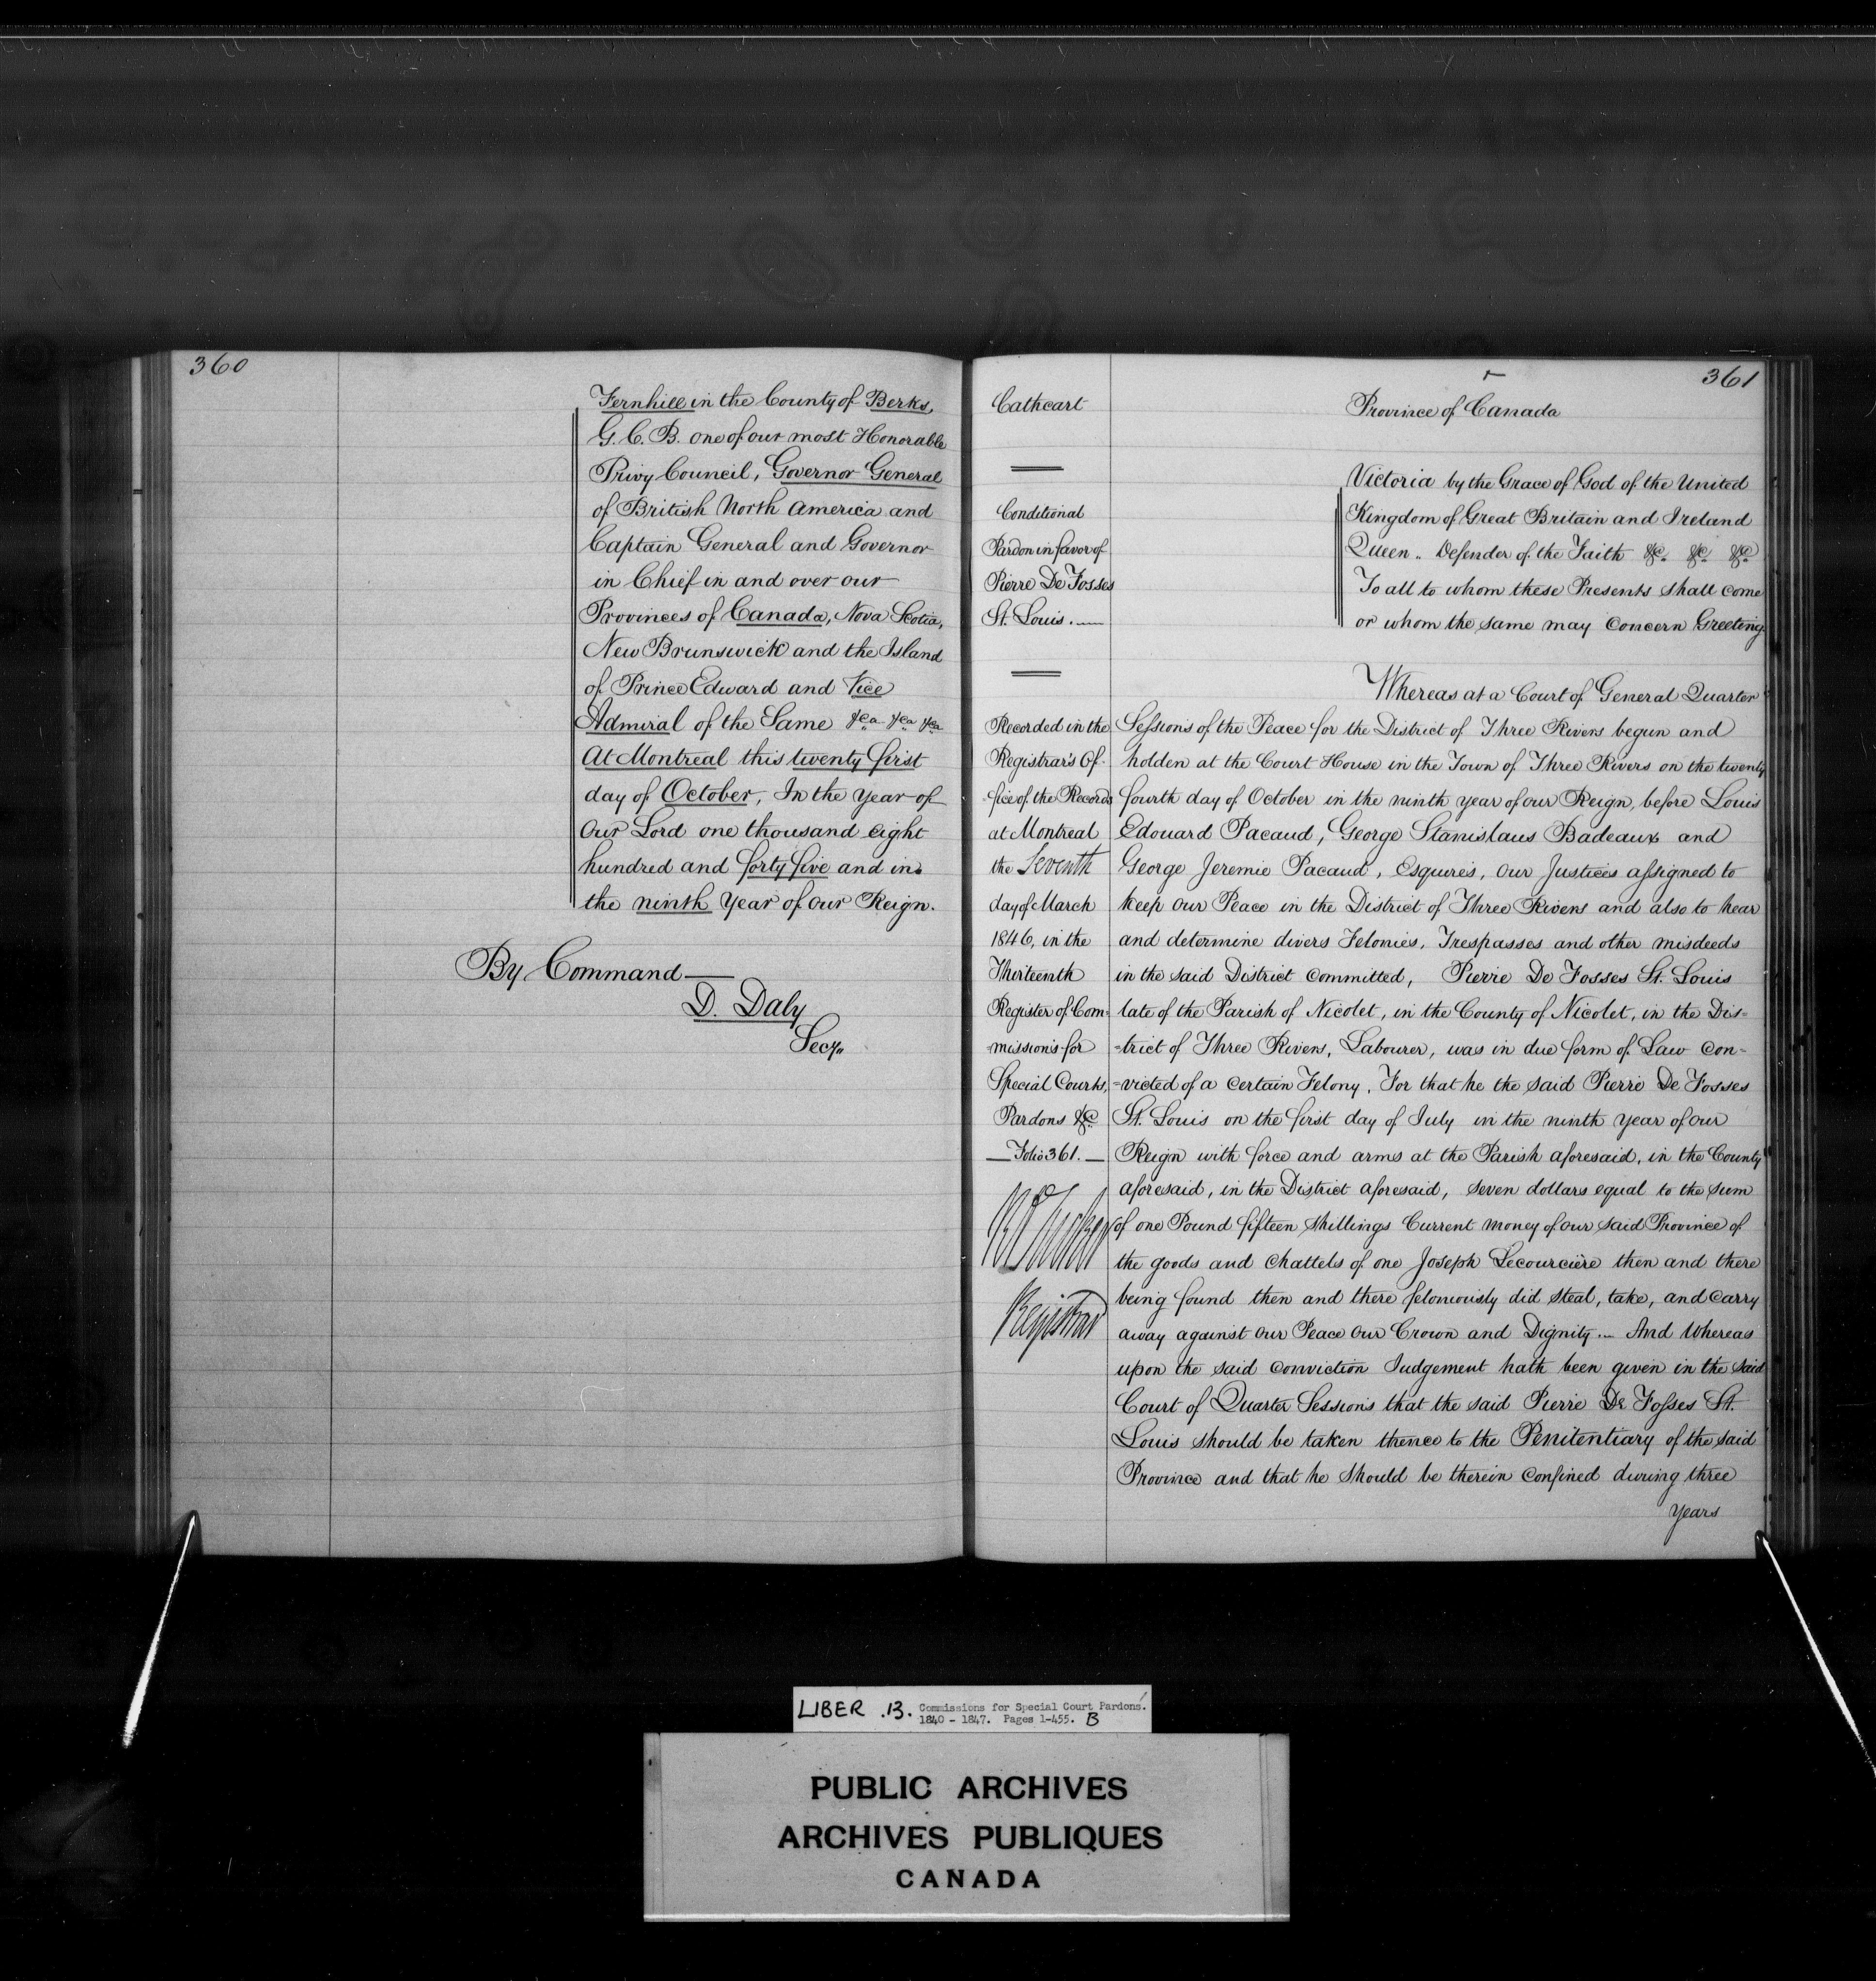 360
Fernhill in the County of Berks,
G. C. B. one of our most Honorable
Privy Council, Governor General
of British North America and
Captain General and Governor
in Chief in and over our
Provinces of Canada, Nova Scotia,
New Brunswick and the Island
of Prince Edward and Vice
Admiral of the Same &ca &ca &ca
At Montreal this twenty first
day of October, In the Year of
Our Lord one thousand eight
hundred and forty five and in
the ninth Year of Our Reign.
By Command—
D. Daly
Secy.
361
Cathcart
Conditional
Pardon in favor of
Pierre De Fosses
St. Louis.—
Recorded in the
Registrar's Of-
-fice of the Records
at Montreal
the Seventh
day of March
1846, in the
Thirteenth
Register of Com=
=missions for
Special Courts,
Pardons &c
— Folio 361. —
Registrar
Province of Canada
Victoria by the Grace of God of the United
Kingdom of Great Britain and Ireland
Queen.. Defender of the Faith &c. &c. &c.
To all to whom these Presents shall come
or whom the same may Concern Greeting.
Whereas at a Court of General Quarter
Sessions of the Peace for the District of Three Rivers begun and
holden at the Court House in the Town of Three Rivers on the twenty
fourth day of October in the ninth year of our Reign, before Louis
Edouard Pacaud, George Stanislaus Badeaux and
George Jeremie Pacaud, Esquires, Our Justices assigned to
keep Our Peace in the District of Three Rivers and also to hear
and determine divers Felonies, Trespasses and other misdeeds
in the said District Committed, Pierre De Fosses St. Louis
late of the Parish of Nicolet, in the County of Nicolet, in the Dis=
=trict of Three Rivers, Labourer, was in due form of Law Con-
=victed of a Certain Felony, For that he the said Pierre De Fosses
St. Louis on the first day of July in the ninth Year of our
Reign with force and arms at the Parish aforesaid, in the County
aforesaid, in the District aforesaid, Seven dollars equal to the sum
of one Pound fifteen Shillings Current money of our said Province of
the goods and Chattels of one Joseph Lecourcière then and there
being found then and there feloniously did steal, take, and carry
away against Our Peace Our Crown and Dignity... And Whereas
upon the said conviction Judgement hath been given in the said
Court of Quarter Sessions that the said Pierre De Fosses St.
Louis should be taken thence to the Penitentiary of the said
Province and that he should be therein Confined during three
Years
LIBER .13. Commissions for Special Court Pardons.
1840 - 1847. Pages 1-455. B
PUBLIC ARCHIVES
ARCHIVES PUBLIQUES
CANADA